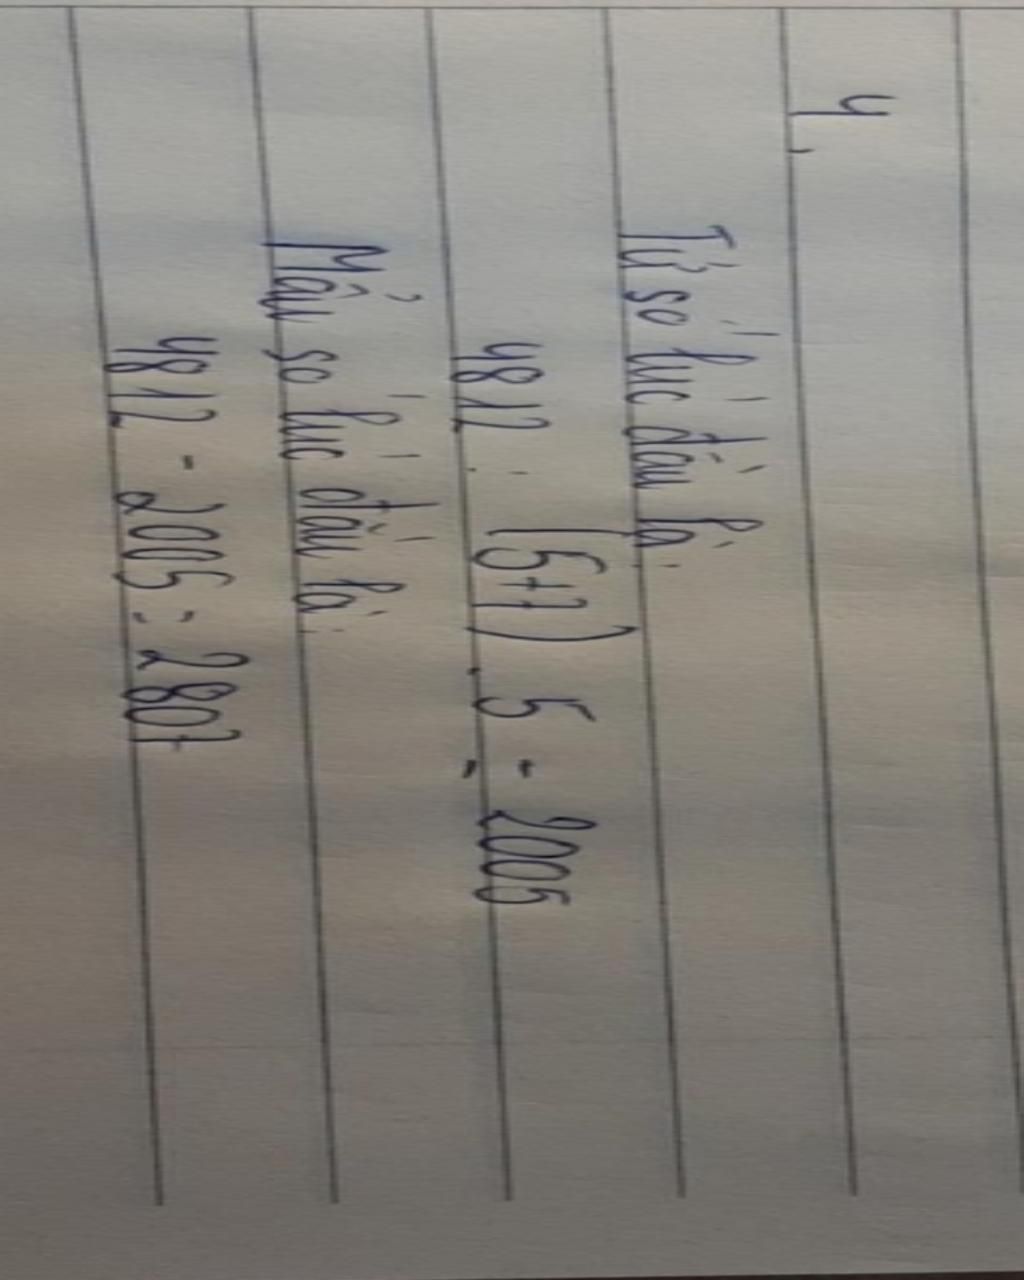 4.
Tử số lúc đầu là:
4812 : (5+7) . 5 = 2005
Mẩu số lúc đầu là:
4812 - 2005 = 2807